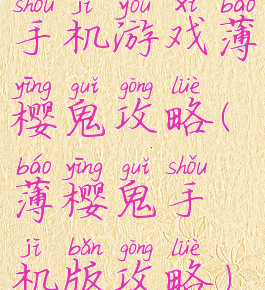 shǒu jī yóu xì báo
手机游戏薄
yīng guǐ gōng lüè
樱鬼攻略(
báo yīng guǐ shǒu
薄樱鬼手
jī bǎn gōng lüè
机版攻略)